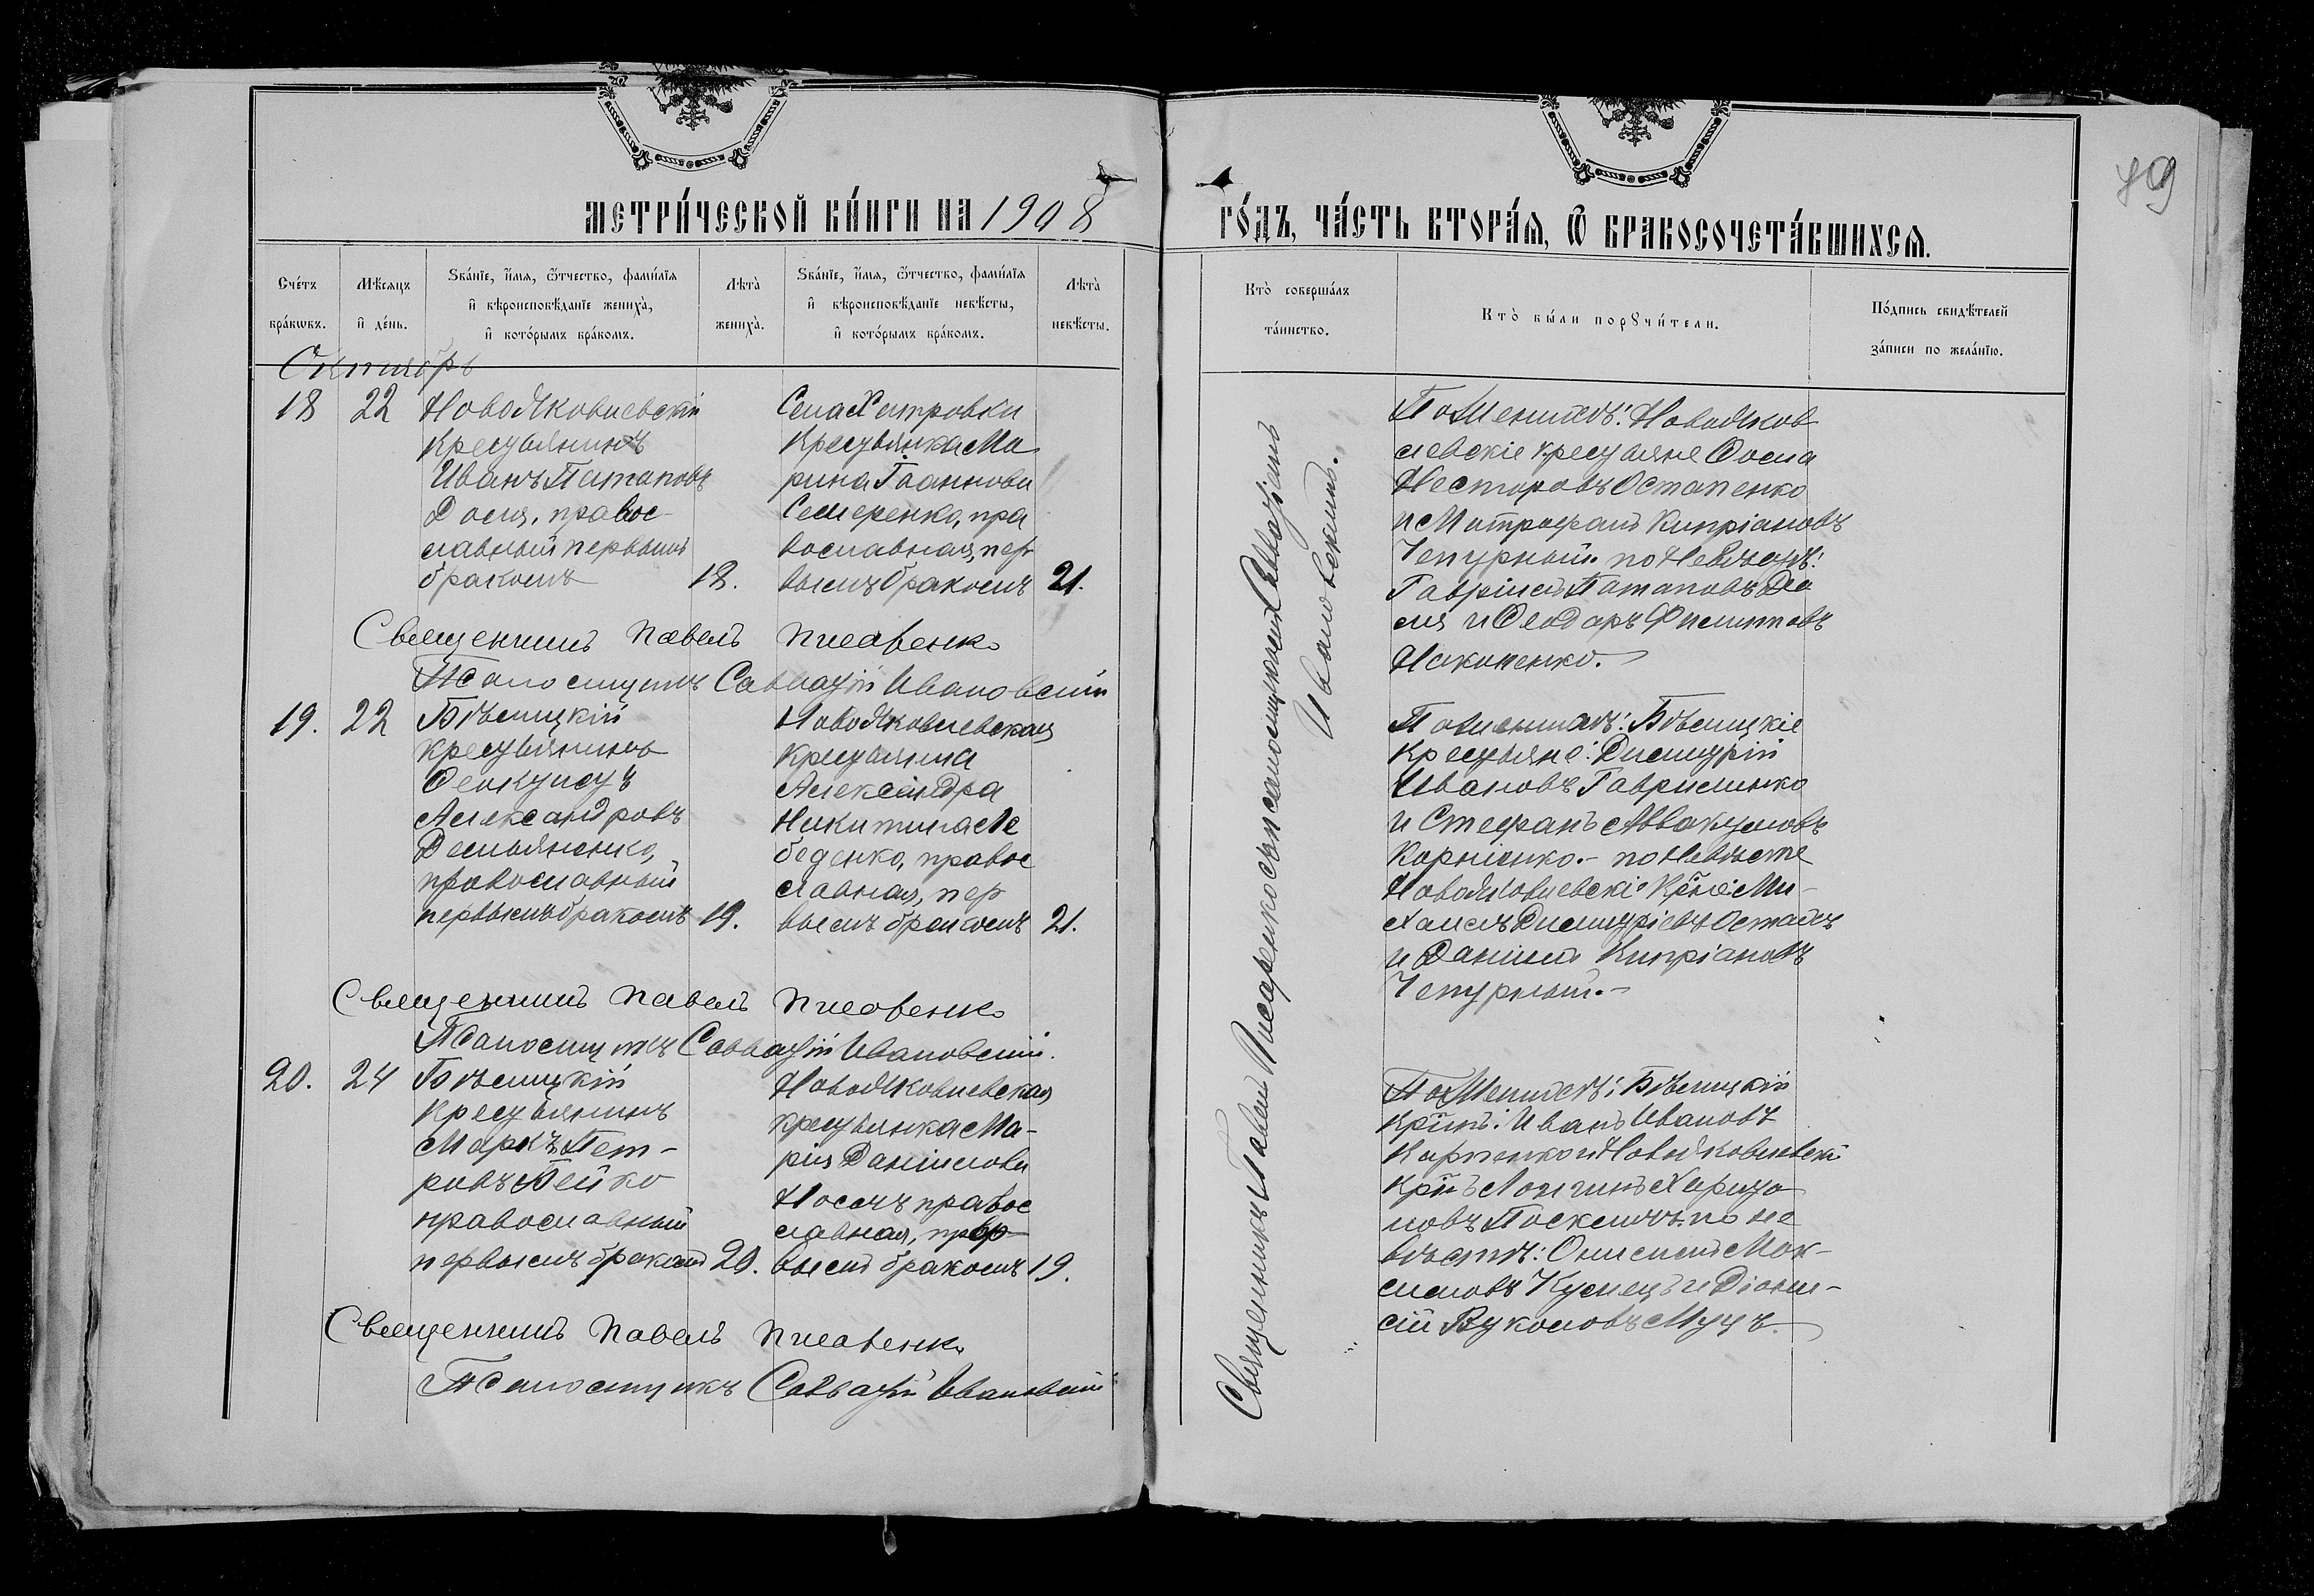 79
МЕТРИ́ЧЕСКОЙ КНИ́ГИ НА 1908
ГО́ДЪ, ЧА́СТЬ ВТОРА́Я, Ѿ БРАКОСОЧЕТА́ВШИХСЯ.
Сче́тъ бра́кѡвъ.
Мѣ́сяцъ и҆ де́нь.
Ѕва́нїе, и҆́мя, ѻ҆́тчество, фами́лїя
и҆ вѣроисповѣ́данїе жениха̀,
и҆ кото́рымъ бра́комъ.
Лѣта̀ жениха̀.
Ѕва́нїе, и҆́мя, ѻ҆́тчество, фами́лїя
и҆ вѣроисповѣ́данїе невѣ́сты,
и҆ кото́рымъ бра́комъ.
Лѣта̀ невѣ́сты.
Кто̀ соверша́лъ та́инство.
Кто̀ бы́ли порꙋчи́тели.
По́дпись свидѣ́телей
за́писи по жела́нїю.
Октябрь
18
22
НовоЯковлевскій
крестьянинъ
Иванъ Патаповъ
правос-
лавный первымъ
бракомъ
18.
Села Хитровки
крестьянка Ма
рина Іоаннова
Семеренко, пра
вославная, пер
вымъ бракомъ
21.
По Женихѣ: НовоЯков
левскіе крестьяне Ѳома
Несторовъ Остапенко
и Митрофанъ Кипріановъ
Чепурный. по Невѣстѣ:
Гавріилъ Патаповъ
и Ѳеодоръ Филиповъ
Священникъ Павелъ Писаренко
Псаломщикъ Савватій Ивановскій
19.
22
Бѣлицкій
крестьянинъ
Александровъ
Демьяненко,
православный
первымъ бракомъ
19.
НовоЯковлевская
крестьянка
Александра
Никитина Ле
беденко, правос
лавная, пер
вымъ бракомъ
21.
По женихѣ: Бѣлицкіе
крестьяне: Димитрій
Ивановъ Гавриленко
и Стефанъ Аввакумовъ
Корніенко.- по Невѣсте
НовоЯковлевскіе кр-не: Ми-
хаилъ Димитріевъ
и Даніилъ Кипріановъ
Чепурный.-
Священникъ Павелъ Писаренко
Псаломщикъ Савватій Ивановскій.
20.
24
Бѣлицкій
крестьянинъ
Маркъ Пет-
ровъ
православный
первымъ бракомъ
20.
НовоЯковлевская
крестьянка Ма-
рія Даніилова
Носачъ правос
лавная, пер-
вымъ бракомъ
19.
По Женихѣ: Бѣлицкій
кр-нъ: Иванъ Ивановъ
Карпенко и НовоЯковлевскій
кр-нъ Логинъ Харито
новъ по не
вѣстѣ: Онисимъ Мак-
симовъ и Діони-
сій Вуколовъ
Священникъ Павелъ Писаренко
Псаломщикъ Савватій Ивановскій
Священникъ Павелъ Писаренко съ псаломщикомъ Савватіемъ
Ивановскимъ.